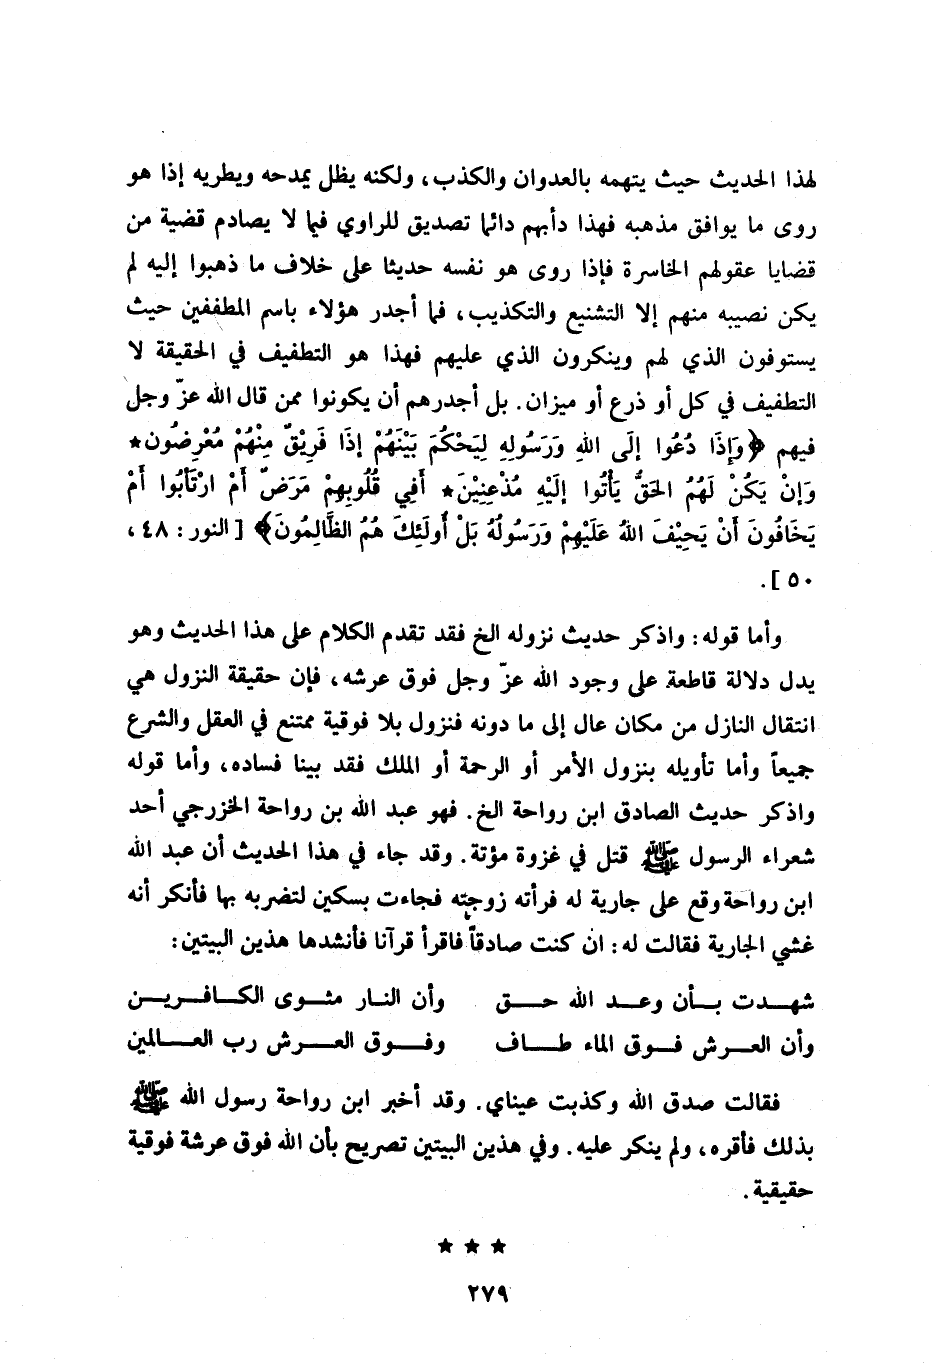 لهذا الحديث حيث يتهمه بالعدوان والكذب، ولكنه يظل يمدحه ويطريه إذا هو
روى ما يوافق مذهبه فهذا دأبهم دائما تصديق للراوي فيما لا يصادم قضية من
قضايا عقولهم الخاسرة فإذا روى هو نفسه حديثا على خلاف ما ذهبوا إليه لم
يكن نصيبه منهم إلا التشنيع والتكذيب، فما أجدر هؤلاء باسم المطففين حيث
يستوفون الذي لهم وينكرون الذي عليهم فهذا هو التطفيف في الحقيقة لا
التطفيف في كل أو ذرع أو ميزان. بل أجدرهم أن يكونوا ممن قال الله عزّ وجل
فيهم ﴿وَإِذَا دُعُوا إلَى اللهِ وَرَسُولِهِ لِيَحْكُمَ بَيْنَهُمْ إذَا فَرِيْقٌ مِنْهُمْ مُعْرِضُون★
وَإنْ يَكُنْ لَهُمُ الحَقُّ يَأْتُوا إلَيْهِ مُذْعِنِيْنَ★ أَفِي قُلُوبِهِمْ مَرَضٌ أَمْ ارْتَابُوا أَمْ
يَخَافُونَ أَنْ يَحِيْفَ اللهُ عَلَيْهِمْ وَرَسُولُهُ بَلْ أُولَئِكَ هُمُ الظَّالِمُونَ﴾ [النور: ٤٨،
٥٠].
وأما قوله: واذكر حديث نزوله الخ فقد تقدم الكلام على هذا الحديث وهو
يدل دلالة قاطعة على وجود الله عزّ وجل فوق عرشه، فإن حقيقة النزول هي
انتقال النازل من مكان عال إلى ما دونه فنزول بلا فوقية ممتنع في العقل والشرع
جميعاً وأما تأويله بنزول الأمر أو الرحمة أو الملك فقد بينا فساده، وأما قوله
واذكر حديث الصادق ابن رواحة الخ. فهو عبد الله بن رواحة الخزرجي أحد
شعراء الرسول ﷺ قتل في غزوة مؤتة. وقد جاء في هذا الحديث أن عبد الله
ابن رواحة وقع على جارية له فرأته زوجته فجاءت بسكين لتضربه بها فأنكر أنه
غشي الجارية فقالت له: ان كنت صادقاً فاقرأ قرآنا فأنشدها هذين البيتين:
شهـدت بـأن وعـد الله حـق وأن النـار مثـوى الكـافـريـن
وأن العـرش فـوق الماء طـاف وفـوق العـرش رب العـالمين
فقالت صدق الله وكذبت عيناي. وقد أخبر ابن رواحة رسول الله ﷺ
بذلك فأقره، ولم ينكر عليه. وفي هذين البيتين تصريح بأن الله فوق عرشة فوقية
حقيقية.
★ ★ ★
٢٧٩